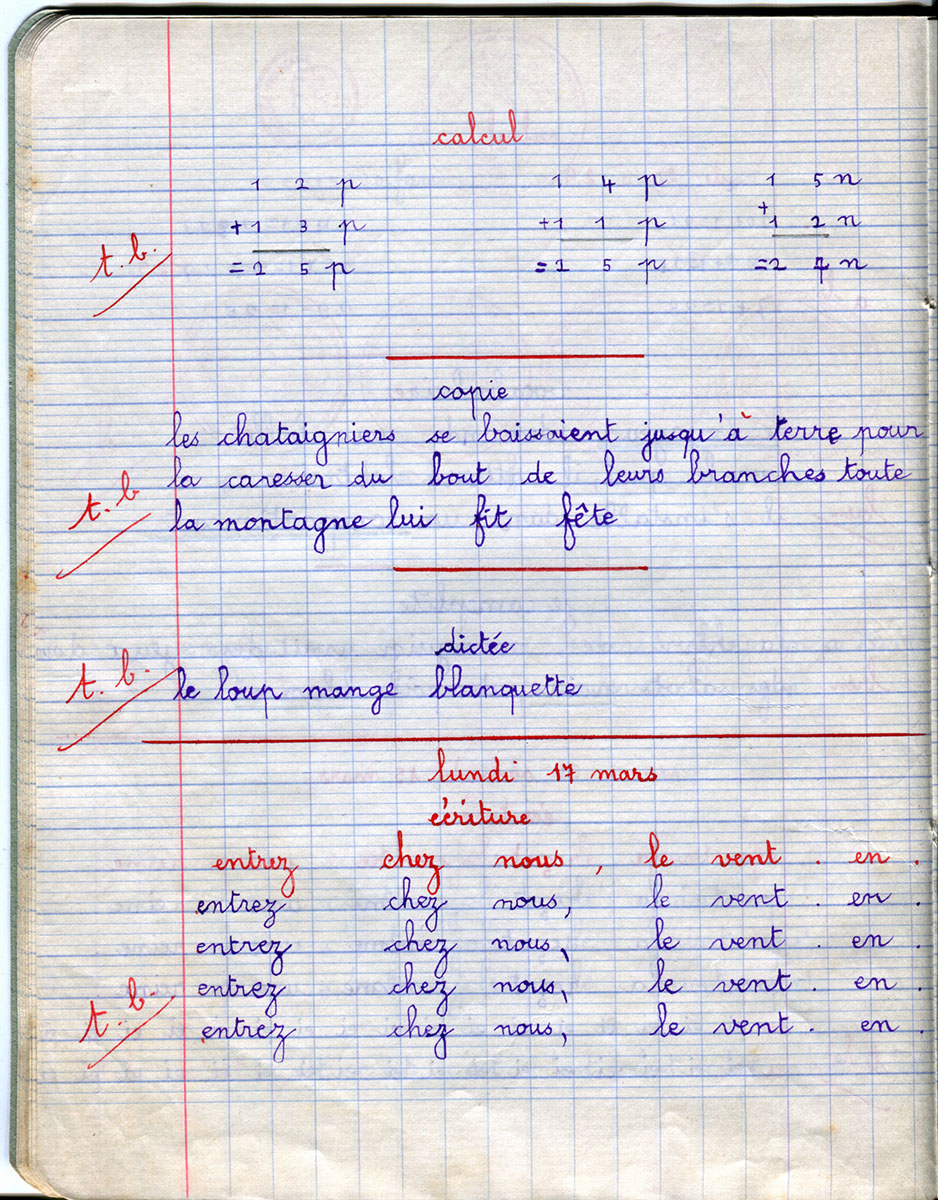 calcul
1 2 p 1 4 p 1 5 n
+1 3 p +1 1 p +1 2 n
t.b. =2 5 p =2 5 p =2 7 n
copie
les chataigniers se baissaient jusqu'à terre pour
la caresser du bout de leurs branches toute
t.b la montagne lui fit fête
dictée
t.b. le loup mange blanquette
lundi 17 mars
écriture
entrez chez nous, le vent. en.
entrez chez nous, le vent. en.
entrez chez nous, le vent. en.
entrez chez nous, le vent. en.
t.b. entrez chez nous, le vent. en.